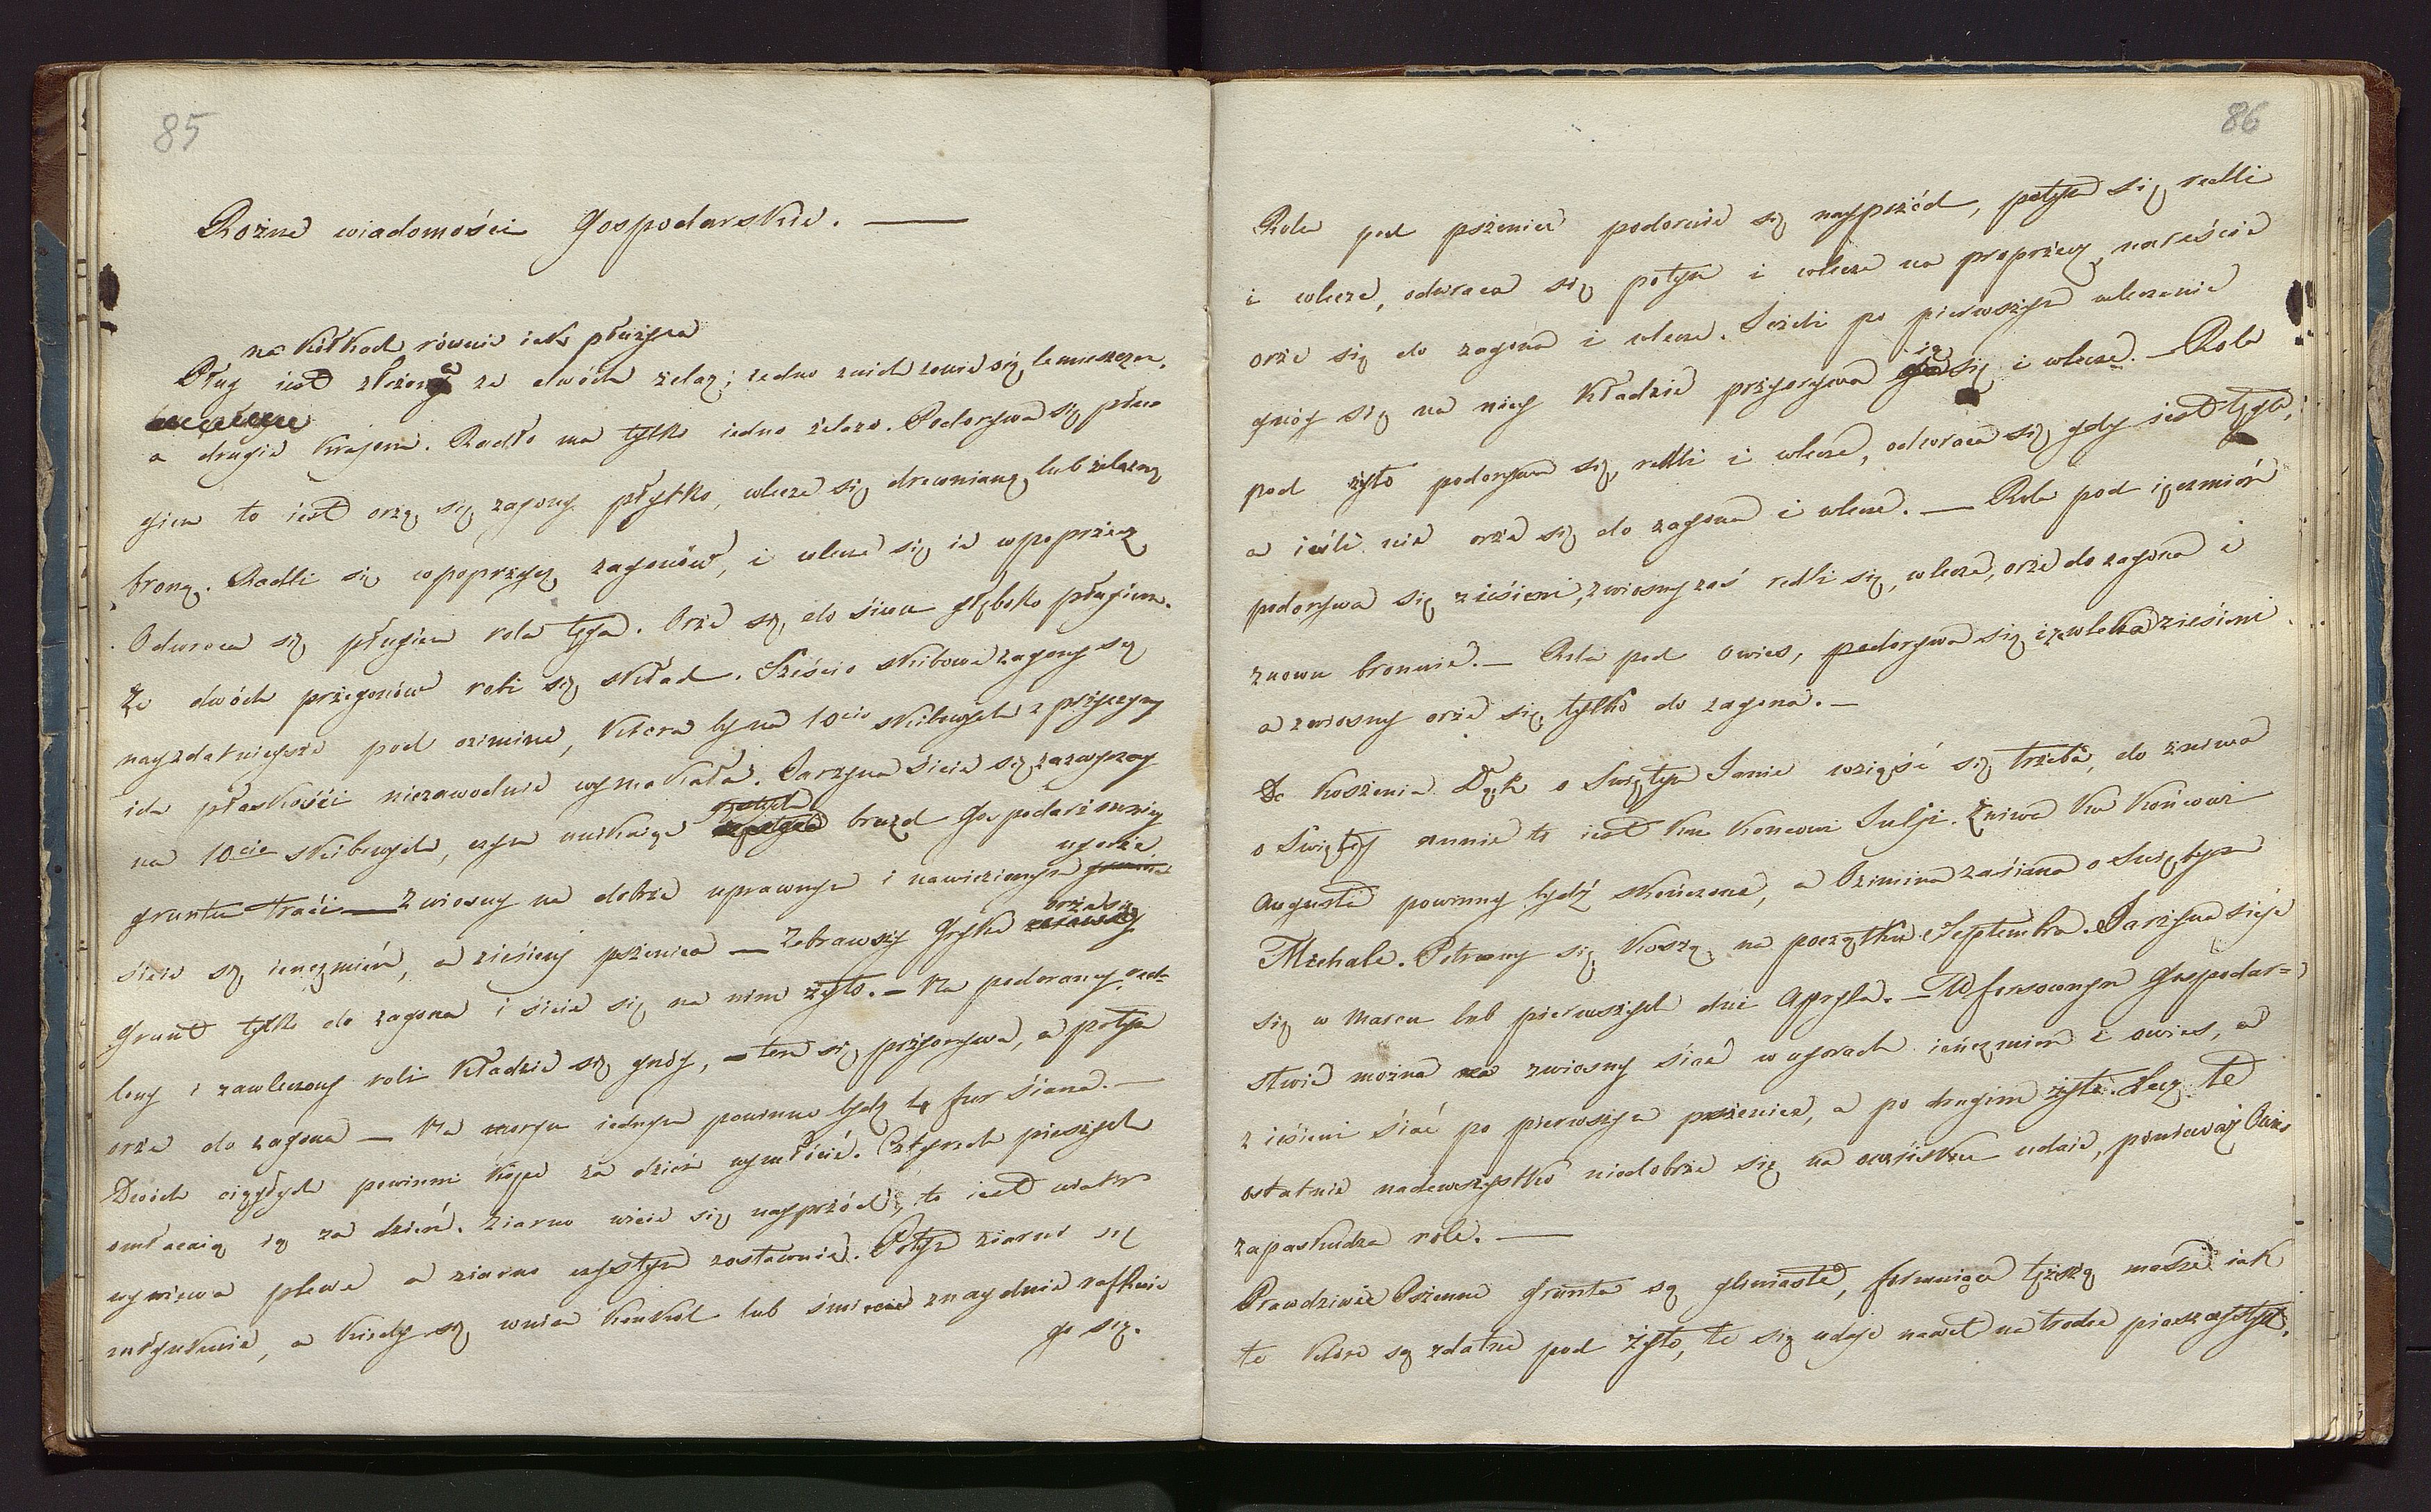 85
Rożne wiadomości Gospodarskie. —
na kółkach równie iak płużyca
Pług iest złożony ze dwóch żelaz; iedno znich zowie się lemieszem,
a drugie krojem. Radło ma tylko iedno żelazo. Podorywa się płu-
giem to iest orzą się zagony płytko, wlecze się drewnianą lub żelazną
broną. Radli się wpoprzycz zagonów, i wlecze się ie wpoprzecz
Odwraca się pługiem rola tęga. Orze się do siewu głęboko pługiem.
Ze dwóch przegonów robi się skład. Sześcio skibowe zagony są
nayzdatnieysze pod ozimine, która by na 10cio skibowych z przyczyny
ich płaskości niezawodnie wymokała. Jarzyna sieie się zazwyczay
na 10cio skibowych, czym unikaiąc częstych brózd Gospodarz mniey
gruntu traci — Z wiosny na dobrze uprawnym i nawiezionym ugorze
sieie się ięczmień, a ziesieny pszenica — Zebrawszy Grykę orze się
Grunt tylko do zagona i sieie się na nim żyto. — Na podoraney, redlo-
loney i zawleczoney roli kładzie się gnóy, ten się przyorywa, a potym
orze do zagona — Na morgu iednym powinno bydz 4 fur siana. —
Dwóch ciągłych powinni kopę za dzień wymłócić. Cztyrech pieszych
omłacaią ią za dzień. Ziarno wieie się nayprzód, to iest wiatr
wywiewa plewe a ziarno czystym zostawuie. Potym ziarno się
młynkuie, a kiedy są wnim kąkol lub śmiecie znayduie rafkuie
go się.
86
Rola pod pszenice podoruie się nayprzód, potym się redli
i wlecze, odwraca się potym i wlecze na poprzecz, nareście
orze się do zagona i wlecze. Jeżeli po pierwszym wleczenie
gnóy się na niey kładzie przyorywa ią się i wlecze. — Rola
pod żyto podorywa się, redli i wlecze, odwraca się gdy iest tęga,
a ieśli nie orze się do zagona i wlecze. — Rola pod ięczmień
podorywa się ziesieni, zwiosny zaś redli się, wlecze, orze do zagona i
znowu bronuie. — Rola pod owies, podorywa się i zawleka ziesieni.
a zwiosny orze się tylko do zagona. —
Do koszenia Łąk o Swiętym Janie wziąść się trzeba, do żniwa
o Swiętey annie to iest ku koncowi Julji. Żniwa ku końcowi
Augusta powinny bydź skończone, a Ozimina zasiana o Swiętym
Michale. Potrawy się koszą na początku Septembra. Jarzyna sieje
się w Marcu lub pierwszych dni Apryla. — W forsownym Gospodar=
stwie można zwiosny siać w ugorach ięczmień i owies, a
ziesieni siać po pierwszym pszenice, a po drugim żyto. Lecz te
ostatnie nadewszystko niedobrze się na owsisku udaie, ponieważ Owies
zapaskudza role. —
Prawdziwie Pszenne grunta są gliniaste, formuiące tęższą masse iak
te które są zdatne pod żyto, te się udaje nawet na trochę piaszczystych.